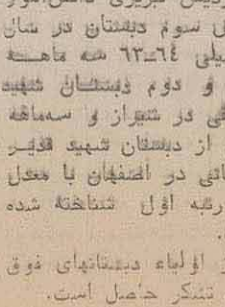 سوم دبستان در سال
۶۴-۶۳ سه ماهه
و دوم دبستان شهید
در شیراز و سه‌ماهه
از دبستان شهید
در اصفهان با معدل
رتبه اول شناخته شده
.
اولیاء دبستانهای فوق
تشکر حاصل است.